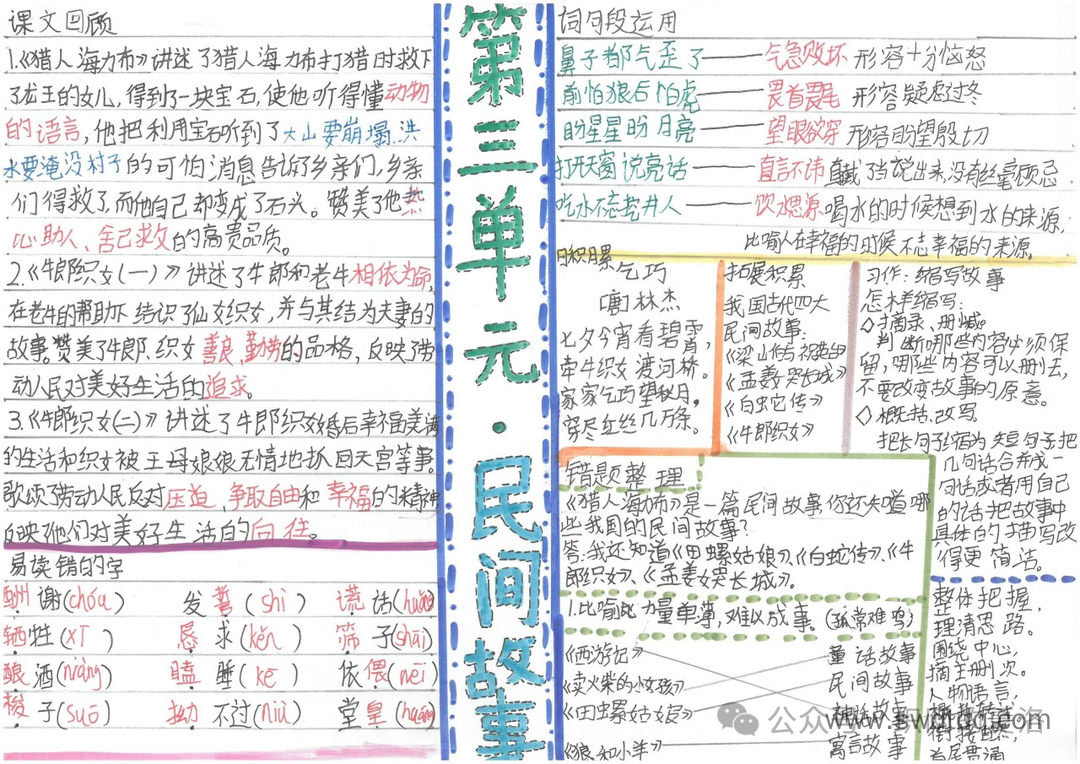 课文回顾
1.《猎人海力布》讲述了猎人海力布打猎时救下
了龙王的女儿,得到了一块宝石,使他听得懂动物
的语言,他把利用宝石听到了大山要崩塌、洪
水要淹没村子的可怕消息告诉了乡亲们,乡亲
们得救了,而他自己却变成了石头。赞美了他热
心助人、舍己救人的高贵品质。
2.《牛郎织女(一)》讲述了牛郎和老牛相依为命,
在老牛的帮助下结识了仙女织女,并与其结为夫妻的
故事。赞美了牛郎、织女善良、勤劳的品格,反映了劳
动人民对美好生活的追求。
3.《牛郎织女(二)》讲述了牛郎织女婚后幸福美满
的生活和织女被王母娘娘无情地抓回天宫等事。
歌颂了劳动人民反对压迫、争取自由和幸福的精神
反映了他们对美好生活的向往。
易读错的字
酬谢(chóu) 发誓(shì) 谎话(huǎn
牺牲(xī) 恳求(kěn) 筛子(shāi)
酿酒(niàng) 瞌睡(kē) 依偎(wēi)
梭子(suō) 拗不过(niù) 堂皇(huáng
第三单元·民间故事
词句段运用
鼻子都气歪了——气急败坏 形容十分恼怒
前怕狼后怕虎——畏首畏尾 形容疑虑过多
盼星星盼月亮——望眼欲穿 形容盼望殷切
打开天窗说亮话——直言不讳 说出来,没有丝毫顾忌
吃水不忘挖井人——饮水思源 喝水的时候想到水的来源,
比喻人在幸福的时候不忘幸福的来源。
日积月累
乞巧
[唐]林杰
七夕今宵看碧霄,
牵牛织女渡河桥。
家家乞巧望秋月,
穿尽红丝几万条。
拓展积累
我国古代四大
民间故事:
《梁山伯与祝英台》
《孟姜女哭长城》
《白蛇传》
《牛郎织女》
习作:缩写故事
怎样缩写:
◇摘录、删减。
判断哪些内容必须保
留,哪些内容可以删去,
不要改变故事的原意。
◇概括、改写
把长句子缩为短句子把
几句话合并成一
句话或者用自己
的话把故事中
具体的描写改
得更简洁。
错题整理
《猎人海力布》是一篇民间故事,你还知道哪
些我国的民间故事?
答:我还知道《田螺姑娘》、《白蛇传》、《牛
郎织女》、《孟姜女哭长城》。
1.比喻力量单薄,难以成事。(孤掌难鸣)
《西游记》 童话故事
《卖火柴的小女孩》 民间故事
《田螺姑娘》 神话故事
《狼和小羊》 寓言故事
整体把握,
理清思路。
围绕中心,
摘主删次。
人物语言,
首尾贯通
公众
www.swdrdq.com